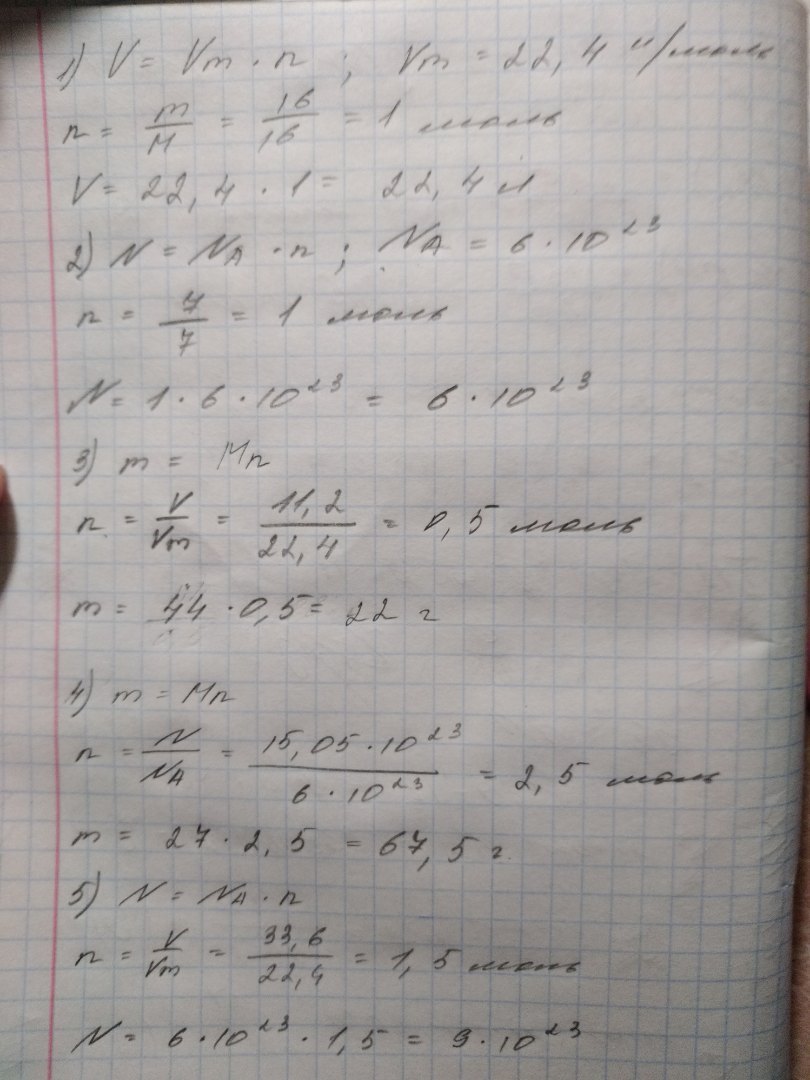 1) V = Vm · n ; Vm = 22,4 л/моль
n = m/M = 16/16 = 1 моль
V = 22,4 · 1 = 22,4 л
2) N = NA · n ; NA = 6 · 10²³
n = 7/7 = 1 моль
N = 1 · 6 · 10²³ = 6 · 10²³
3) m = Mn
n = V/Vm = 11,2/22,4 = 0,5 моль
m = 44 · 0,5 = 22 г
4) m = Mn
n = N/NA = 15,05 · 10²³/6 · 10²³ = 2,5 моль
m = 27 · 2,5 = 67,5 г
5) N = NA · n
n = V/Vm = 33,6/22,4 = 1,5 моль
N = 6 · 10²³ · 1,5 = 9 · 10²³